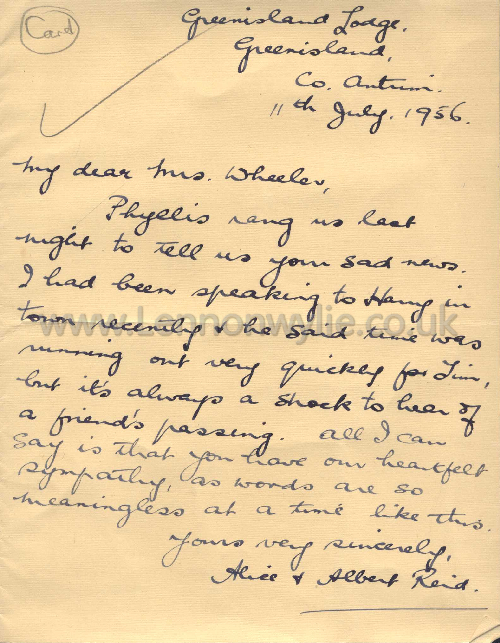 Card
Greenisland Lodge.
Greenisland,
Co. Antrim.
11th July. 1956.
My dear Mrs. Wheeler,
Phyllis rang us last
night to tell us your sad news.
I had been speaking to Harry in
town recently & he said time was
www.Lennonwylie.co.uk
running out very quickly for Jim,
but it's always a shock to hear of
a friend's passing. All I can
say is that you have our heartfelt
sympathy, as words are so
meaningless at a time like this.
Yours very sincerely,
Alice & Albert Reid.